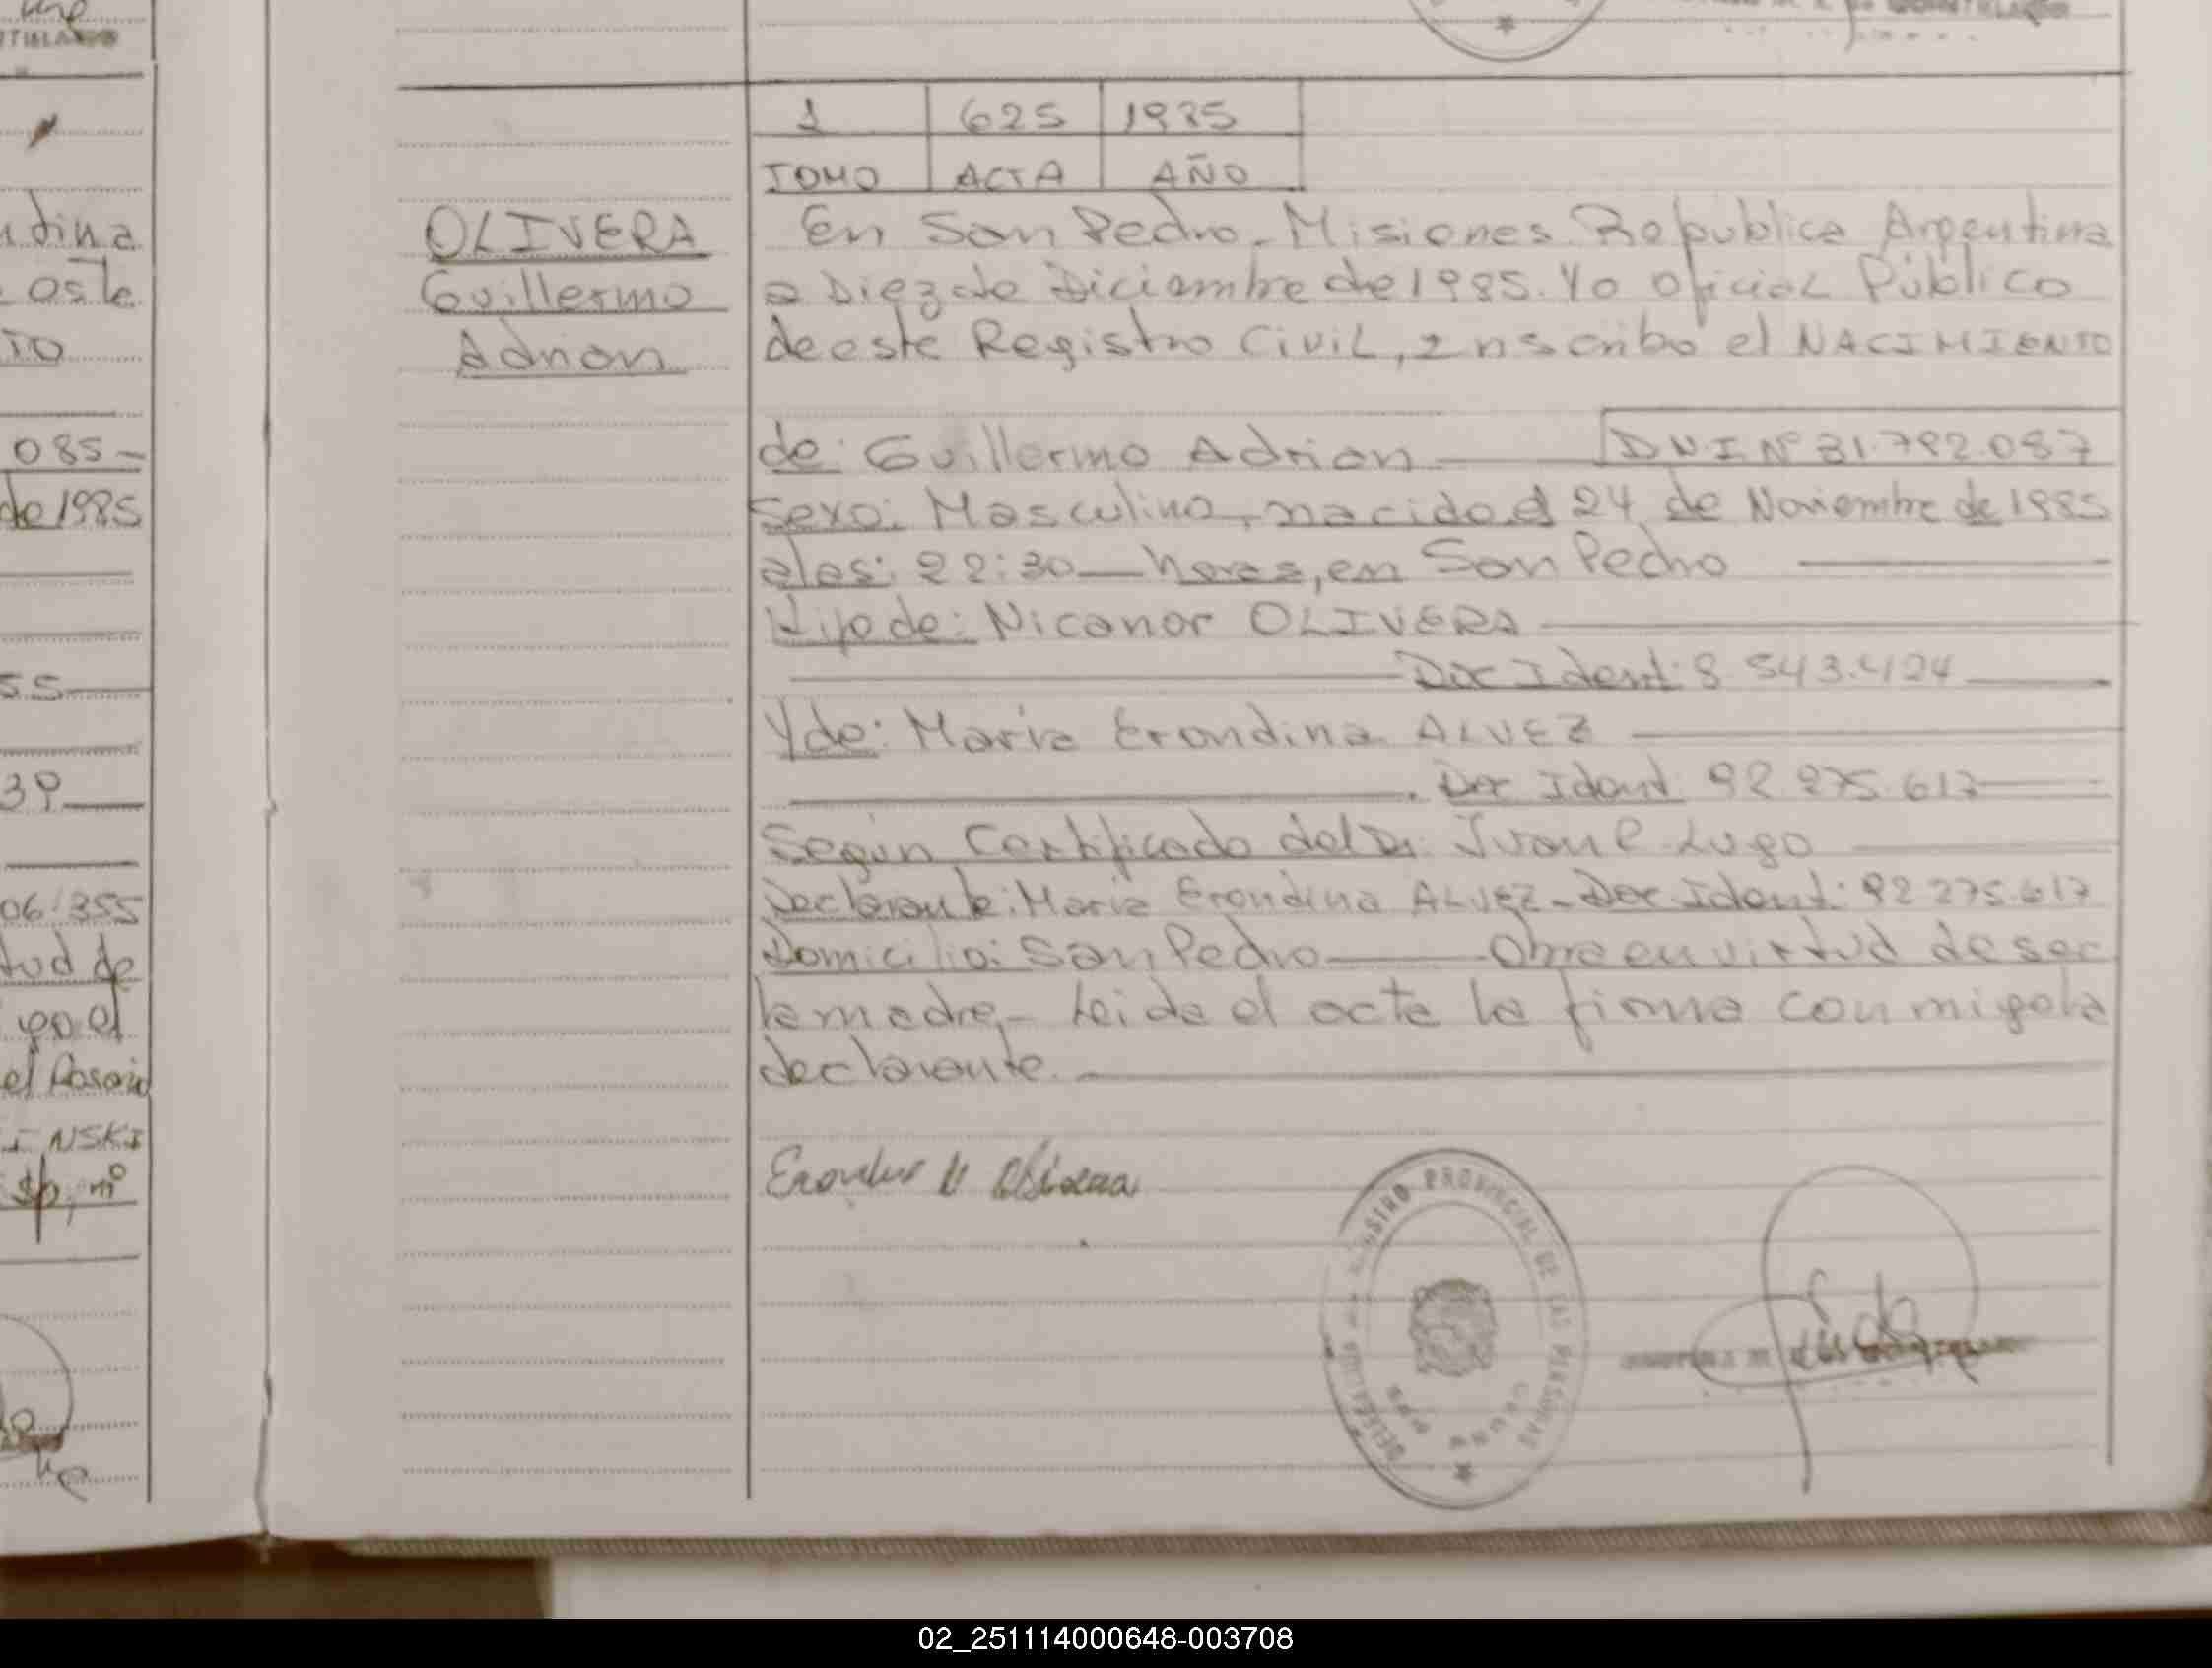 1 625 1985
TOMO ACTA AÑO
OLIVERA
Guillermo
Adrian
En San Pedro - Misiones Republica Argentina
a Diez de Diciembre de 1985. Yo Oficial Público
de este Registro Civil, Inscribo el NACIMIENTO
de: Guillermo Adrian DNI Nº 31.782.087
Sexo: Masculino, nacido el 24 de Noviembre de 1985
a las: 22:30 horas, en San Pedro
Hijo de: Nicanor OLIVERA
Doc Ident: 8.543.424
Y de: Maria Erondina ALVEZ
Doc Ident 92.275.617
Según Certificado del Dr. Lugo
Declarante: Maria Erondina ALVEZ - Doc Ident: 92.275.617
Domicilio: San Pedro Obra en virtud de ser
la madre, - Leida el acta la firma conmigo la
declarante.
REGISTRO PROVINCIAL DE LAS PERSONAS
ndina
este
TO
085
de 1985
55
39
06.355
tud de
go el
el
INSKI
02_251114000648-003708